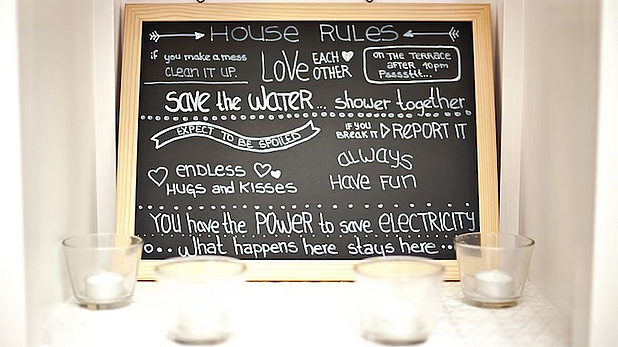 HOUSE RULES
if you make a mess
CLEAN IT UP.
LOVE EACH OTHER
ON THE TERRACE
AFTER 10pm
Psssst!t...
SAVE the WATER... shower together
EXPECT TO BE SPOILED
IF YOU BREAK IT REPORT IT
ENDLESS
HUGS and KISSES
ALWAYS
HAVE FUN
YOU have the POWER to save ELECTRICITY
what happens here stays here